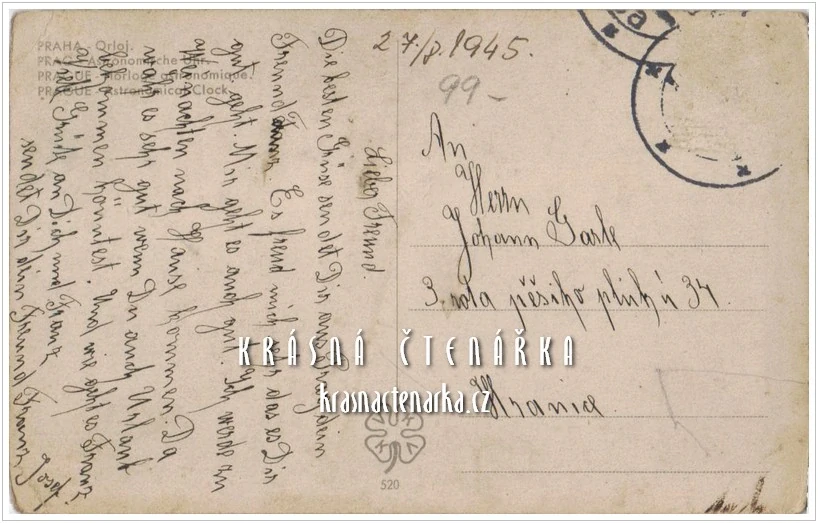 PRAHA - Orloj.
PRAG - Astronomische Uhr.
PRAGUE - Horloge astronomique.
PRAGUE - Astronomical Clock.
Lieber Freund.
Die besten Grüse sendet Dir aus Prag dein
Freund Franz. Es freud mich sehr das es Dir
gut geht. Mir geht es auch gut. Ich werde zu
Weihnachten nach Hause kommen. Da
wäre es sehr gut wenn Du auch Urlaub
bekommen könntest. Und wie geht es Franz.
viele Grüße an Dich und Franz
sendet Dir dein Freund Franz
Josef
27/8. 1945.
99-
An
Herrn
Johann
3. rota pěšího pluku 34.
Hranice
KRÁSNÁ ČTENÁŘKA
krasnactenarka.cz
520